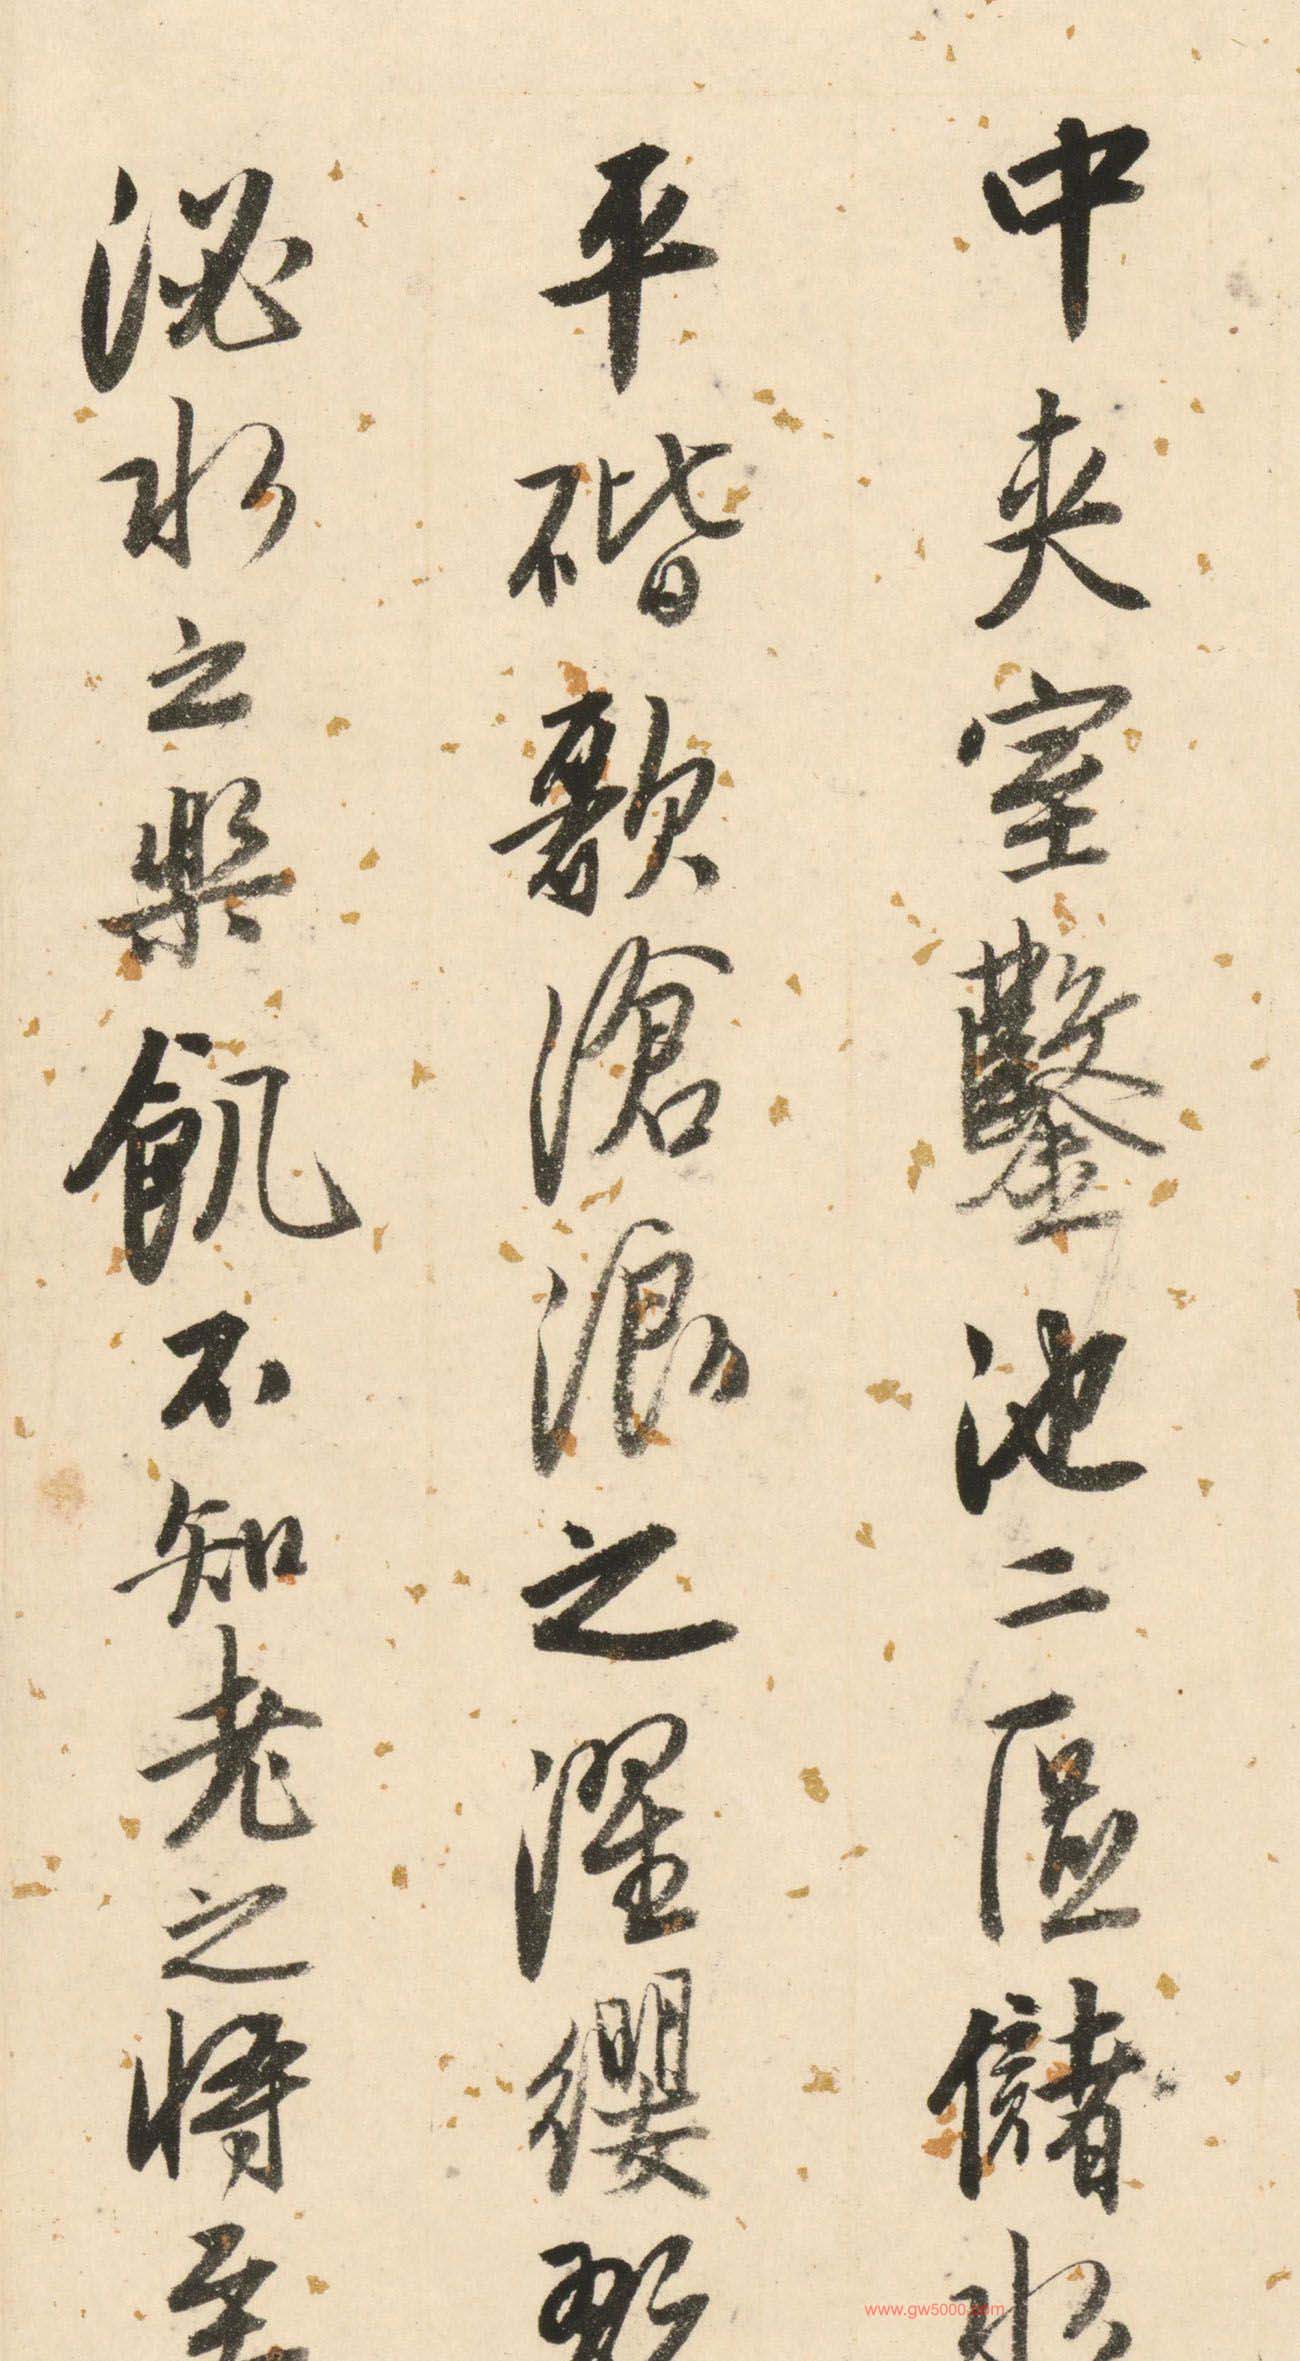 中夾室鑿池二區儲水
平階歌滄浪之濯纓聊
泌水之樂飢不知老之將至
www.gw5000.com